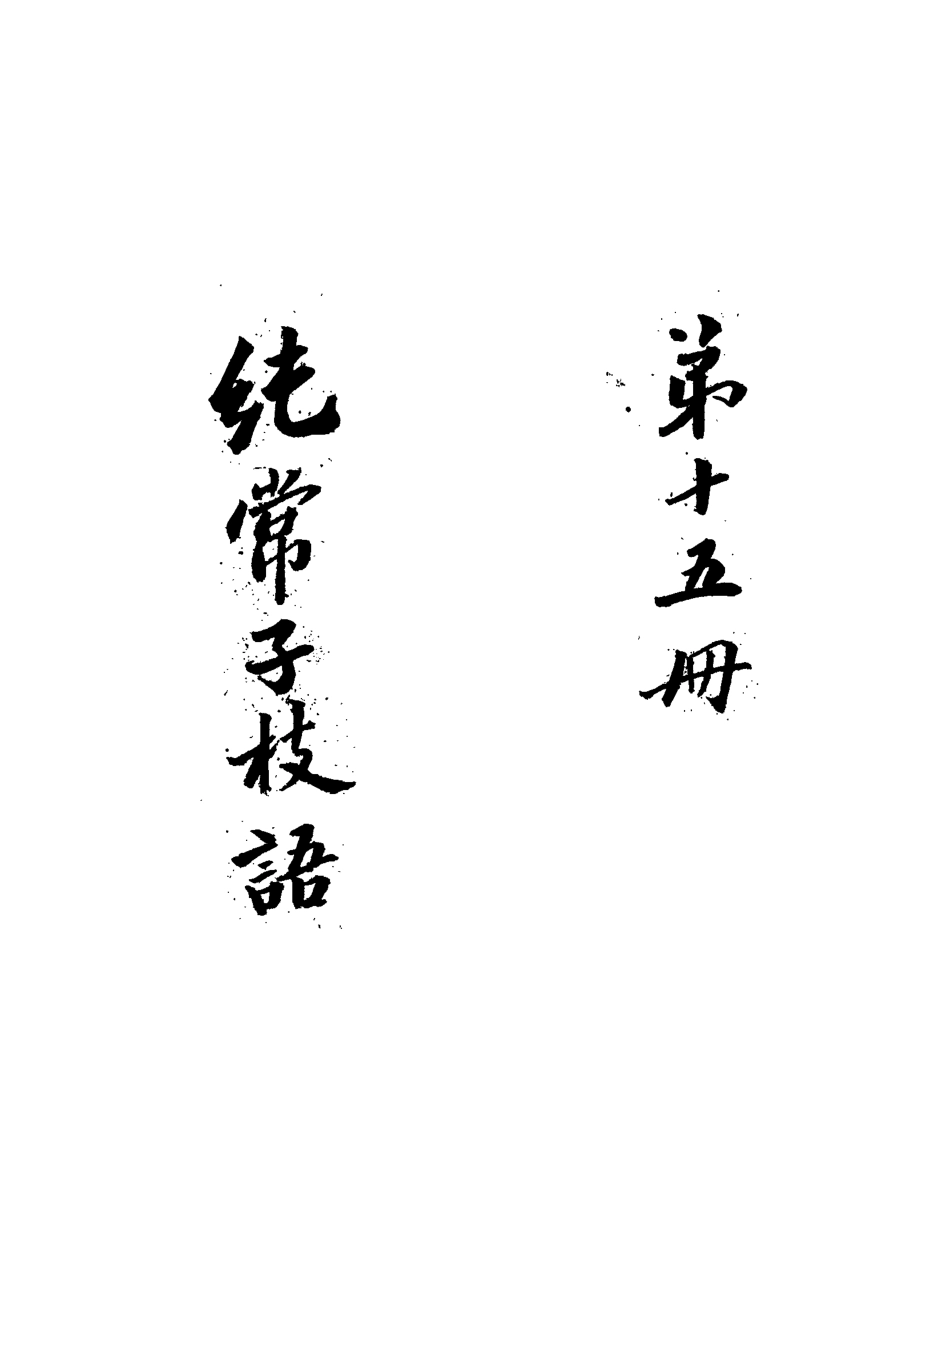 第十五冊
純常子枝語